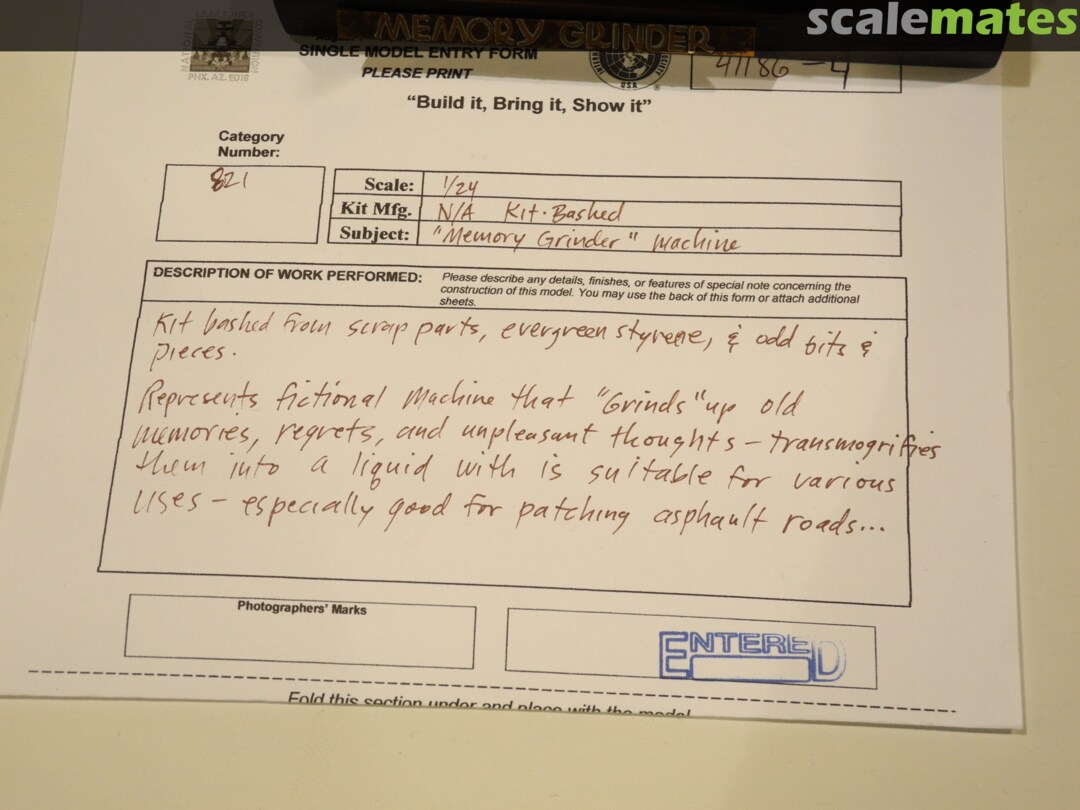 scalemates
MEMORY GRINDER
SINGLE MODEL ENTRY FORM
PLEASE PRINT
PHX. AZ. 2018
USA
41186-4
"Build it, Bring it, Show it"
Category
Number:
821
Scale: 1/24
Kit Mfg. N/A Kit-Bashed
Subject: "Memory Grinder" machine
DESCRIPTION OF WORK PERFORMED: Please describe any details, finishes, or features of special note concerning the
construction of this model. You may use the back of this form or attach additional
sheets.
Kit bashed from scrap parts, evergreen styrene, & odd bits &
pieces.
Represents fictional machine that "Grinds" up old
memories, regrets, and unpleasant thoughts - transmogrifies
them into a liquid with is suitable for various
uses - especially good for patching asphault roads...
Photographers' Marks
ENTERED
Fold this section under and place with the model